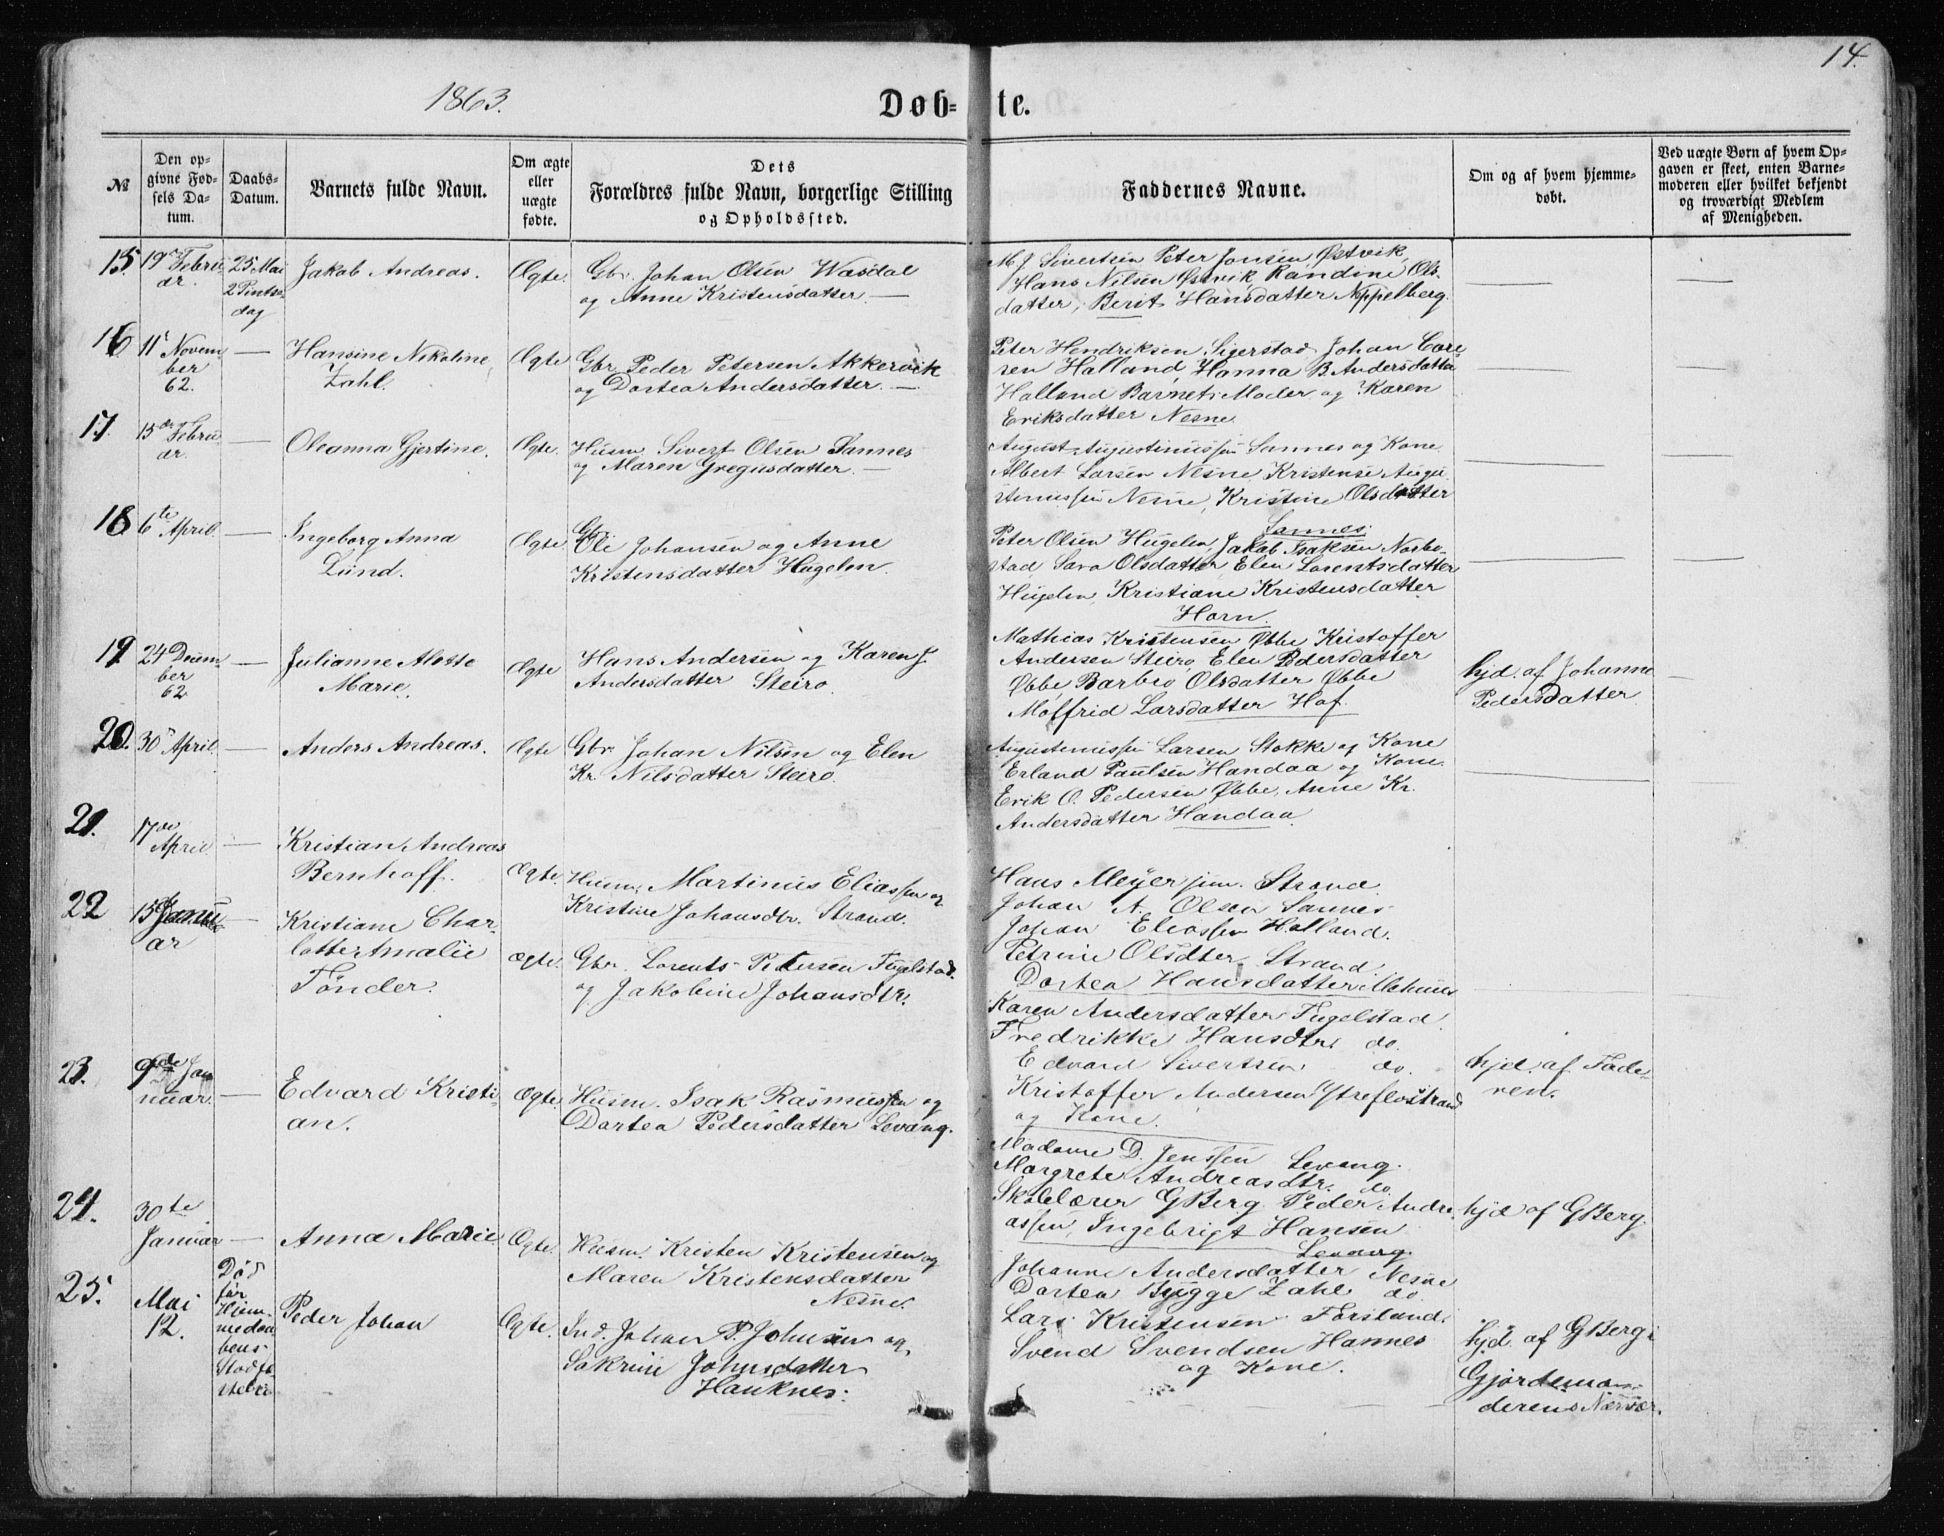 14.
1863.
Døb-
te.
№
Den op-
givne Fød-
sels Da-
tum.
Daabs-
Datum.
Barnets fulde Navn.
Om ægte
eller
uægte
fødte.
Dets
Forældres fulde Navn, borgerlige Stilling
og Opholdssted.
Faddernes Navne.
Om og af hvem hjemme-
døbt.
Ved uægte Børn af hvem Op-
gaven er skeet, enten Barne-
moderen eller hvilket bekjendt
og troværdigt Medlem
af Menigheden.
15
19 Febru
ar.
25 Mai
2 Pintse
dag
Jakob Andreas.
Ægte.
Gbr. Johan Olsen Wasdal
og Anne Kristensdatter. —
M J Sivertsen Peter Jonsen Østvik,
Hans Nilsen Østvik, Randine Ols-
datter, Berit Hansdatter Appelberg.
16
11 Novem
ber
62.
—
Hansine Nikoline,
Zahl.
Ægte
Gbr. Peder Petersen Akkervik
og Dortea Andersdatter. —
Peter Hendriksen, Sigerstad Johan Core-
ren Halland, Hanna B. Andersdatter
Halland Barnets Moder og Karen
Eriksdatter Nesne.
17.
15 Febru
ar.
—
Oleanna Gjertine.
Ægte.
Husm. Sivert Olsen Sannes
og Maren Gregusdatter. —
August Augustinussen Sannes og Kone
Albert Larsen Nesne, Kristense Augu
stinussen Nesne, Kristine Olsdatter
Sannes.
18
6te April.
—
Ingeborg Anna
Lund.
Ægte.
Gbr.
Ole Johansen og Anne
Kristensdatter Hugelen.
Peter Olsen Hugelen, Jakob Isaksen Norbo-
stad, Sara Olsdatter, Elen Lorentsdatter
Hugelen, Kristiane Kristensdatter
Horn.
19
24 Decem
ber
62
—
Julianne Alette
Marie.
Ægte
Hans Andersen og Karen J.
Andersdatter Steiro.
Mathias Kristensen Øbbe, Kristoffer
Andersen Steiro, Elen Pedersdatter
Øbbe, Barbro Olsdatter Øbbe
Molfrid Larsdatter Hof.
hjd. af Johanne
Pedersdatter
20.
30 April.
—
Anders Andreas.
Ægte
Gbr. Johan Nilsen og Elen
Kr. Nilsdatter Steiro.
Augustinussen Larsen Stokke og Kone
Erland Paulsen Handaa og Kone.
Erik O. Pedersen Øbbe, Anne Kr.
Andersdatter Handaa.
21.
17de
April.
—
Kristian Andreas
Bernhoff.
Ægte.
Husm. Martinus Eliassen og
Kristine Johansdtr. Strand.
Hans Meÿer jun. Strand.
Johan A. Olsen Sannes
Johan Eliassen Halland.
Petrine Olsdtter Strand.
Dortea Hansdatter
22
15 Janu
ar
—
Kristiane Char-
lotte Amalie
Tönder.
Ægte.
Gbr. Lorents Petersen Fugelstad.
og Jakobine Johansdtr.
Karen Andersdatter Fugelstad.
Fredrikke Hansdtr. do.
Edvard Sivertsen. do.
Kristoffer Andersen
og Kone.
23.
9de Ja
nuar.
—
Edvard Kristi-
an.
Ægte.
Husm. Isak Rasmussen og
Dortea Pedersdatter Levang.
Madame D. Jenssen Levang.
Margrete Andreasdtr. do
Skolelærer GBerg. Peder Andre-
assen, Ingebrigt Hansen
Levang.
hjd. af Fade-
ren.
24.
30te
Januar
—
Anna Marie.
Ægte.
Husm. Kristen Kristensen og
Maren Kristensdatter
Nesne.
Johanne Andersdatter Nesne
Dortea Bÿgge Zahl do.
Lars Kristensen Forsland.
Svend Svendsen Hannes
og Kone.
hjd af GBerg.
25.
Mai
12.
Död
før
Peder Johan
Ægte.
Ind. Johan P. Johnsen og
Sakrine Johnsdatter
Hauknes.
hjd. af GBerg i
Gjordemo-
derens Nærvær.